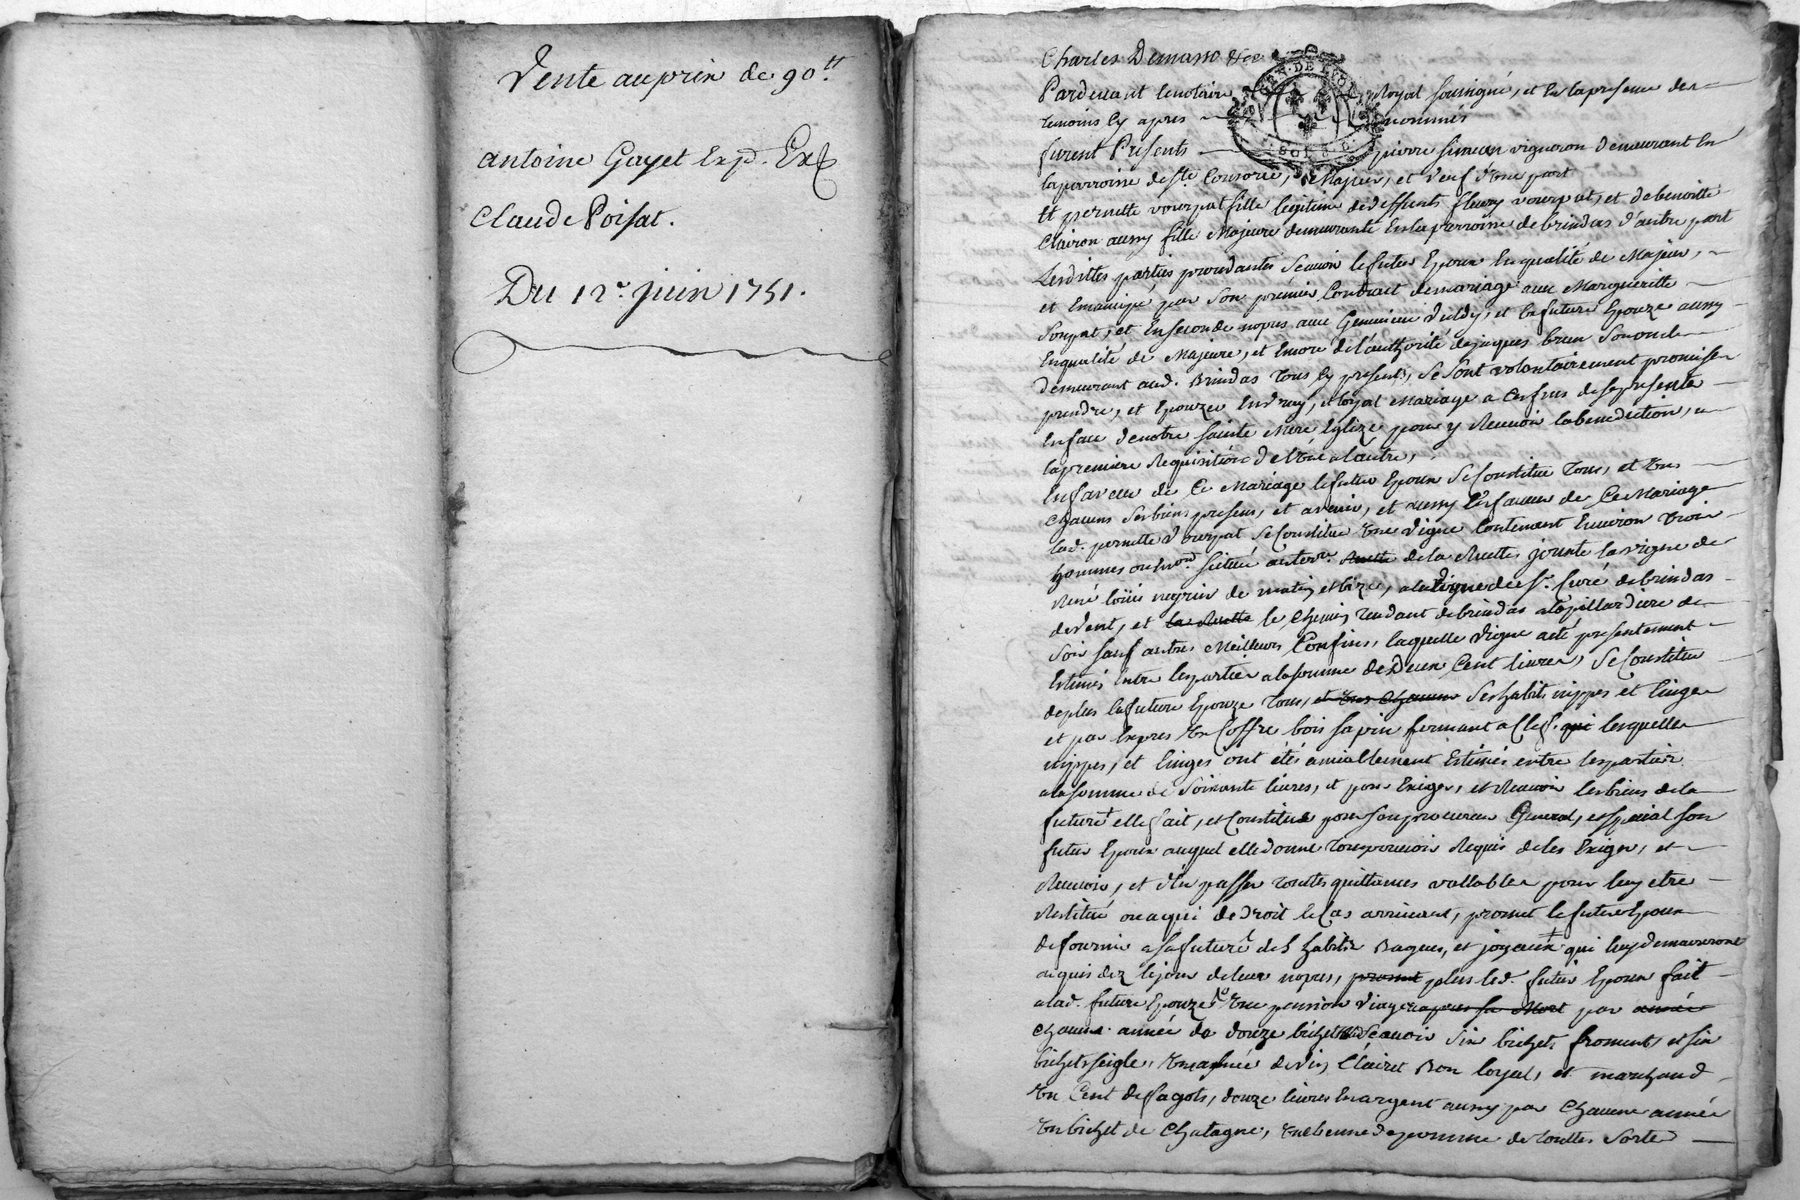 Vente au prix de 90.tt
antoine Gayet Exp. Ex
Claude Poisat.
Du 12e. juin 1751.
Charles Demasso &ce
GEN. DE LYON
SOLS
Pardevant le notaire Royal soussigné, et En la presence des
temoins Cy apres nommés
furent Présents pierre simeon vigneron demeurant En
la parroisse de ste. Consorce, Majeur, et veuf d'une part
Et pernette vourpat fille legitime de deffunts fleury vourpat, et de benoitte
Clairon aussy fille Majeure demeurante En la parroisse de brindas d'autre part
Lesdittes parties procedantes Scavoir le futur Epoux En qualité de Majeur,
et Emancipé par son premier Contract de mariage avec Margueritte
et En seconde nopces avec Genevieve et la future Epouze aussy
En qualité de Majeure, et Encore de l'authorité de jaques brun son oncle
demeurant aud. Brindas tous Cy presents, Se sont volontairement promis se
prendre, et Epouzer En vray, et loyal Mariage a Ces fins de se presenter
En face de notre sainte Mere Eglize pour y Recevoir la benediction, a
la premiere Requisition de l'un a l'autre,
En faveur de Ce Mariage le futur Epoux Se Constitue tous, et un
Chacuns Ses biens presens, et avenir, et aussy En faveur de Ce Mariage
lad. pernette vourpat Se Constitue une vigne Contenant Environ trois
hommes ou Situé au terre. de la Ruette jointe la vigne de
René loüis negrier de matin et bize, a la vigne de Sr. Curé de brindas
de vent, et la Ruette le chemin tendant de brindas a la pillardiere de
soir sauf autres Meilleurs Confins, laquelle vigne a été presentement
Estimés Entre les parties a la somme de Deux Cent livres, Se Constitue
de plus la future Epouze tous, et uns Chacuns Ses habits nippes et linges
et par Expres un Coffre bois sapin fermant a Clef. qui lesquelles
nippes, et linges ont étés amiablement Estimés entre les parties
a la somme de Soixante livres, et pour Exiger, et Recevoir les biens de la
future elle fait, et Constitue pour son procureur General, et special son
futur Epoux auquel elle donne tout pouvoir Requis de les Exiger, et
Recevoir, et d'En passer toutes quittances vallables pour luy etre
Restitué ou a qui de droit le Cas arrivant, promet le futur Epoux
de fournir a sa future des habits Bagues, et joyaux qui luy demeureront
acquis dez le jour de leur nopces, promet plus led. futur Epoux fait
a lad. future Epouze une pension viagere apres sa Mort par année
Chacune année de douze bichets Scavoir Six bichets froment, et six
bichets seigle, une asnée de vin Clairet Bon loyal, et marchand
un Cent de fagots, douze livres En argent aussy par Chacune année
un bichet de Chatagne, une benne de pomme de touttes Sorte